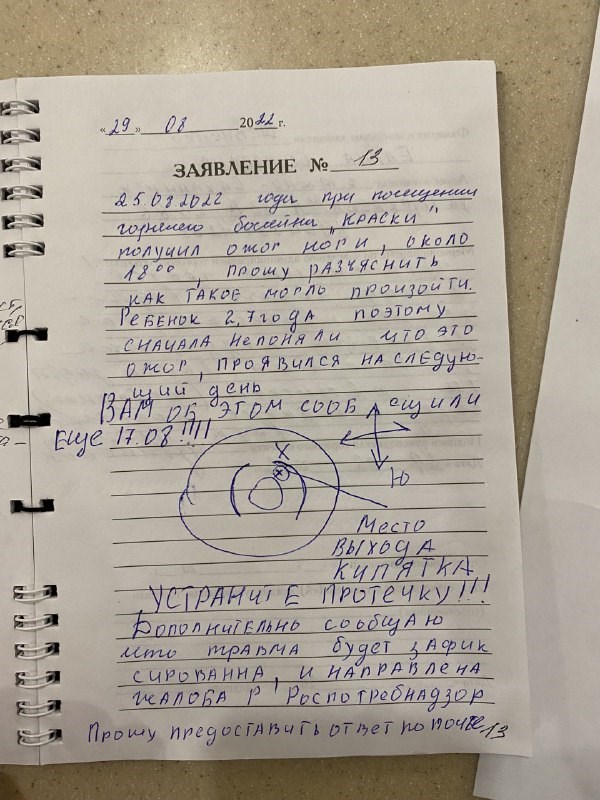 «29» 08 2022 г.
ЗАЯВЛЕНИЕ № 13
25.08.2022 года при посещении
горячего бассейна "КРАСКИ"
получил ожог ноги, около
18⁰⁰, прошу разъяснить
как такое могло произойти.
Ребенок 2,7 года поэтому
сначала непоняли что это
ожог, проявился на следую-
щий день
ВАМ ОБ ЭТОМ СООБЩИЛИ
ЕЩЕ 17.08!!!!
X
Ю
Место
выхода
кипятка
УСТРАНИТЕ ПРОТЕЧКУ!!!
Дополнительно сообщаю
што травма будет зафик
сированна, и направлена
жалоба в Роспотребнадзор
Прошу предоставить ответ по почте
13